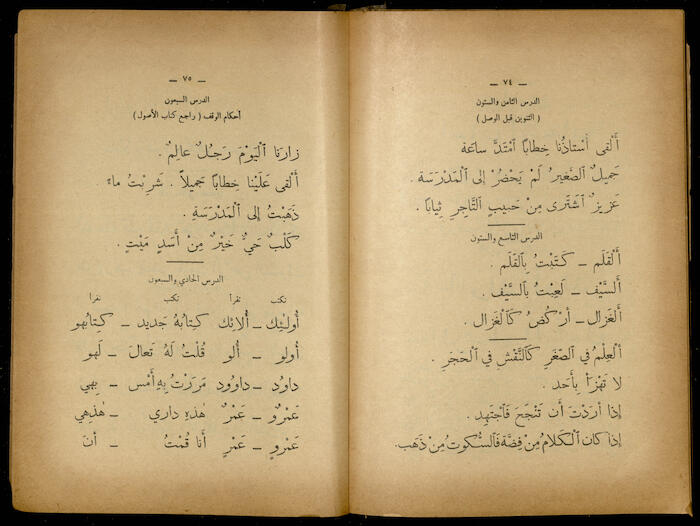 — ٧٤ —
الدرس الثامن والستون
( التنوين قبل الوصل )
أَلْقى أُسْتاذُنا خِطابًا ٱمْتَدَّ ساعَة
جَميلٌ ٱلصَّغيرُ لَمْ يَحْضُرْ إِلى ٱلمَدْرَسَة .
عَزيزٌ ٱشْتَرى مِنْ حَبيبٍ ٱلتَّاجِرِ ثِيابًا .
الدرس التاسع والستون
أَلْقَلَم – كَتَبْتُ بِٱلقَلَم .
أَلسَّيْف – لَعِبْتُ بِٱلسَّيْف .
أَلغَزال – أَرْكُضُ كَٱلغَزال .
أَلعِلْمُ في ٱلصِّغَرِ كَٱلنَّقْشِ في ٱلحَجَر .
لا تَهْزَأْ بِأَحَد .
إِذا أَرَدْتَ أَن تَنْجَحَ فَٱجْتَهِد .
إِذا كانَ ٱلكَلامُ مِنْ فِضَّة فَٱلسُّكوتُ مِنْ ذَهَب .
— ٧٥ —
الدرس السبعون
أحكام الوقف ( راجع كتاب الأصول )
زارَنا ٱلْيَوْمَ رَجُلٌ عالِمٌ .
أَلْقى عَلَيْنا خِطابًا جَميلاً . شَرِبْتُ ماءً
ذَهَبْتُ إِلى ٱلْمَدْرَسَةِ .
كَلْبٌ حَيٌّ خَيْرٌ مِنْ أَسَدٍ مَيْتٍ .
الدرس الحادي والسبعون
نكتب نقرأ نكتب نقرأ
أُولـٰئِك – أُلائِك كِتابُهُ جَديد – كِتابُهو
أُولو – أُلو قُلْتُ لَهُ تَعالَ – لَهو
داوُد – داوُود مَرَرْتُ بِهِ أَمْسِ – بِهي
عَمْرٌو – عَمْرٌ هٰذِهِ داري – هٰذِهي
عَمْرٍو – عَمْرٍ أَنا قُمْتُ – أَنَ